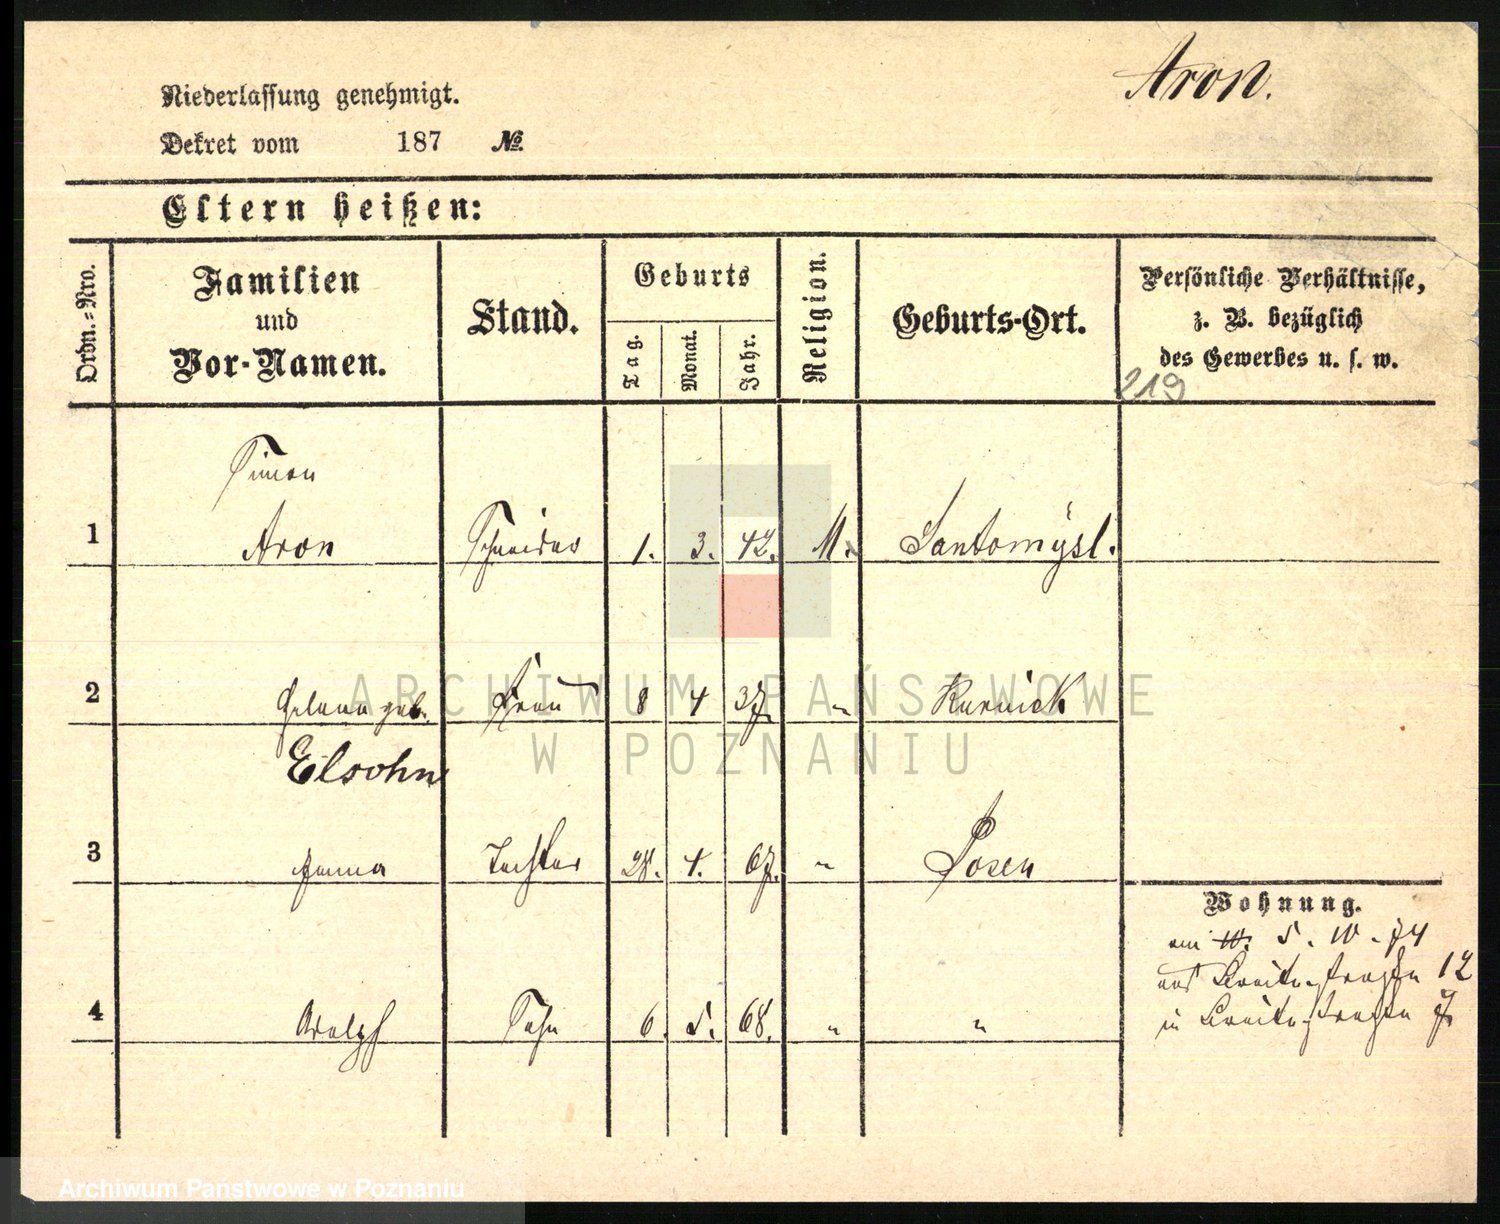 Aron.
Niederlassung genehmigt.
Dekret vom 187 №.
Eltern heißen:
Ordn.-Nro.
Familien
und
Vor-Namen.
Stand.
Geburts
Tag.
Monat.
Jahr.
Religion.
Geburts-Ort.
Persönliche Verhältnisse,
z. B. bezüglich
des Gewerbes u. s. w.
219
Simon
1 Aron Schneider 1. 3. 42. M. Santomysl.
2 geb. Frau 8 4 37. " Kurnick
Elsohn
3 Tochter 28. 4. 67. " Posen
4 Adolph Sohn 6. 5. 68. " "
Wohnung.
am 5. 10. 74
aus Breitestraße 12
in Breitestraße 7.
ARCHIWUM PAŃSTWOWE
W POZNANIU
Archiwum Państwowe w Poznaniu